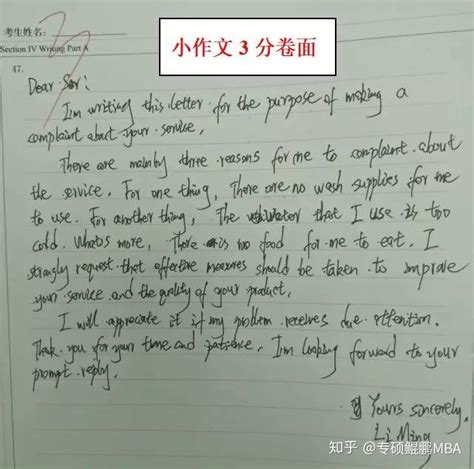 考生姓名:
3
小作文 3 分卷面
Section IV Writing Part A
47.
Dear Sir:
I'm writing this letter for the purpose of making a
complaint about your service.
There are mainly three reasons for me to complaint about
the service. For one thing, There are no wash supplies for me
to use. For another thing, The water that I use is too
cold. What's more, There is no food for me to eat. I
strongly request that effective measures should be taken to improve
your service and the quality of your product.
I will appreciate it if my problem receives due attention.
Thank you for your time and patience. I'm looking forward to your
prompt reply.
Yours sincerely.
Li Ming
知乎 @专硕鲲鹏MBA